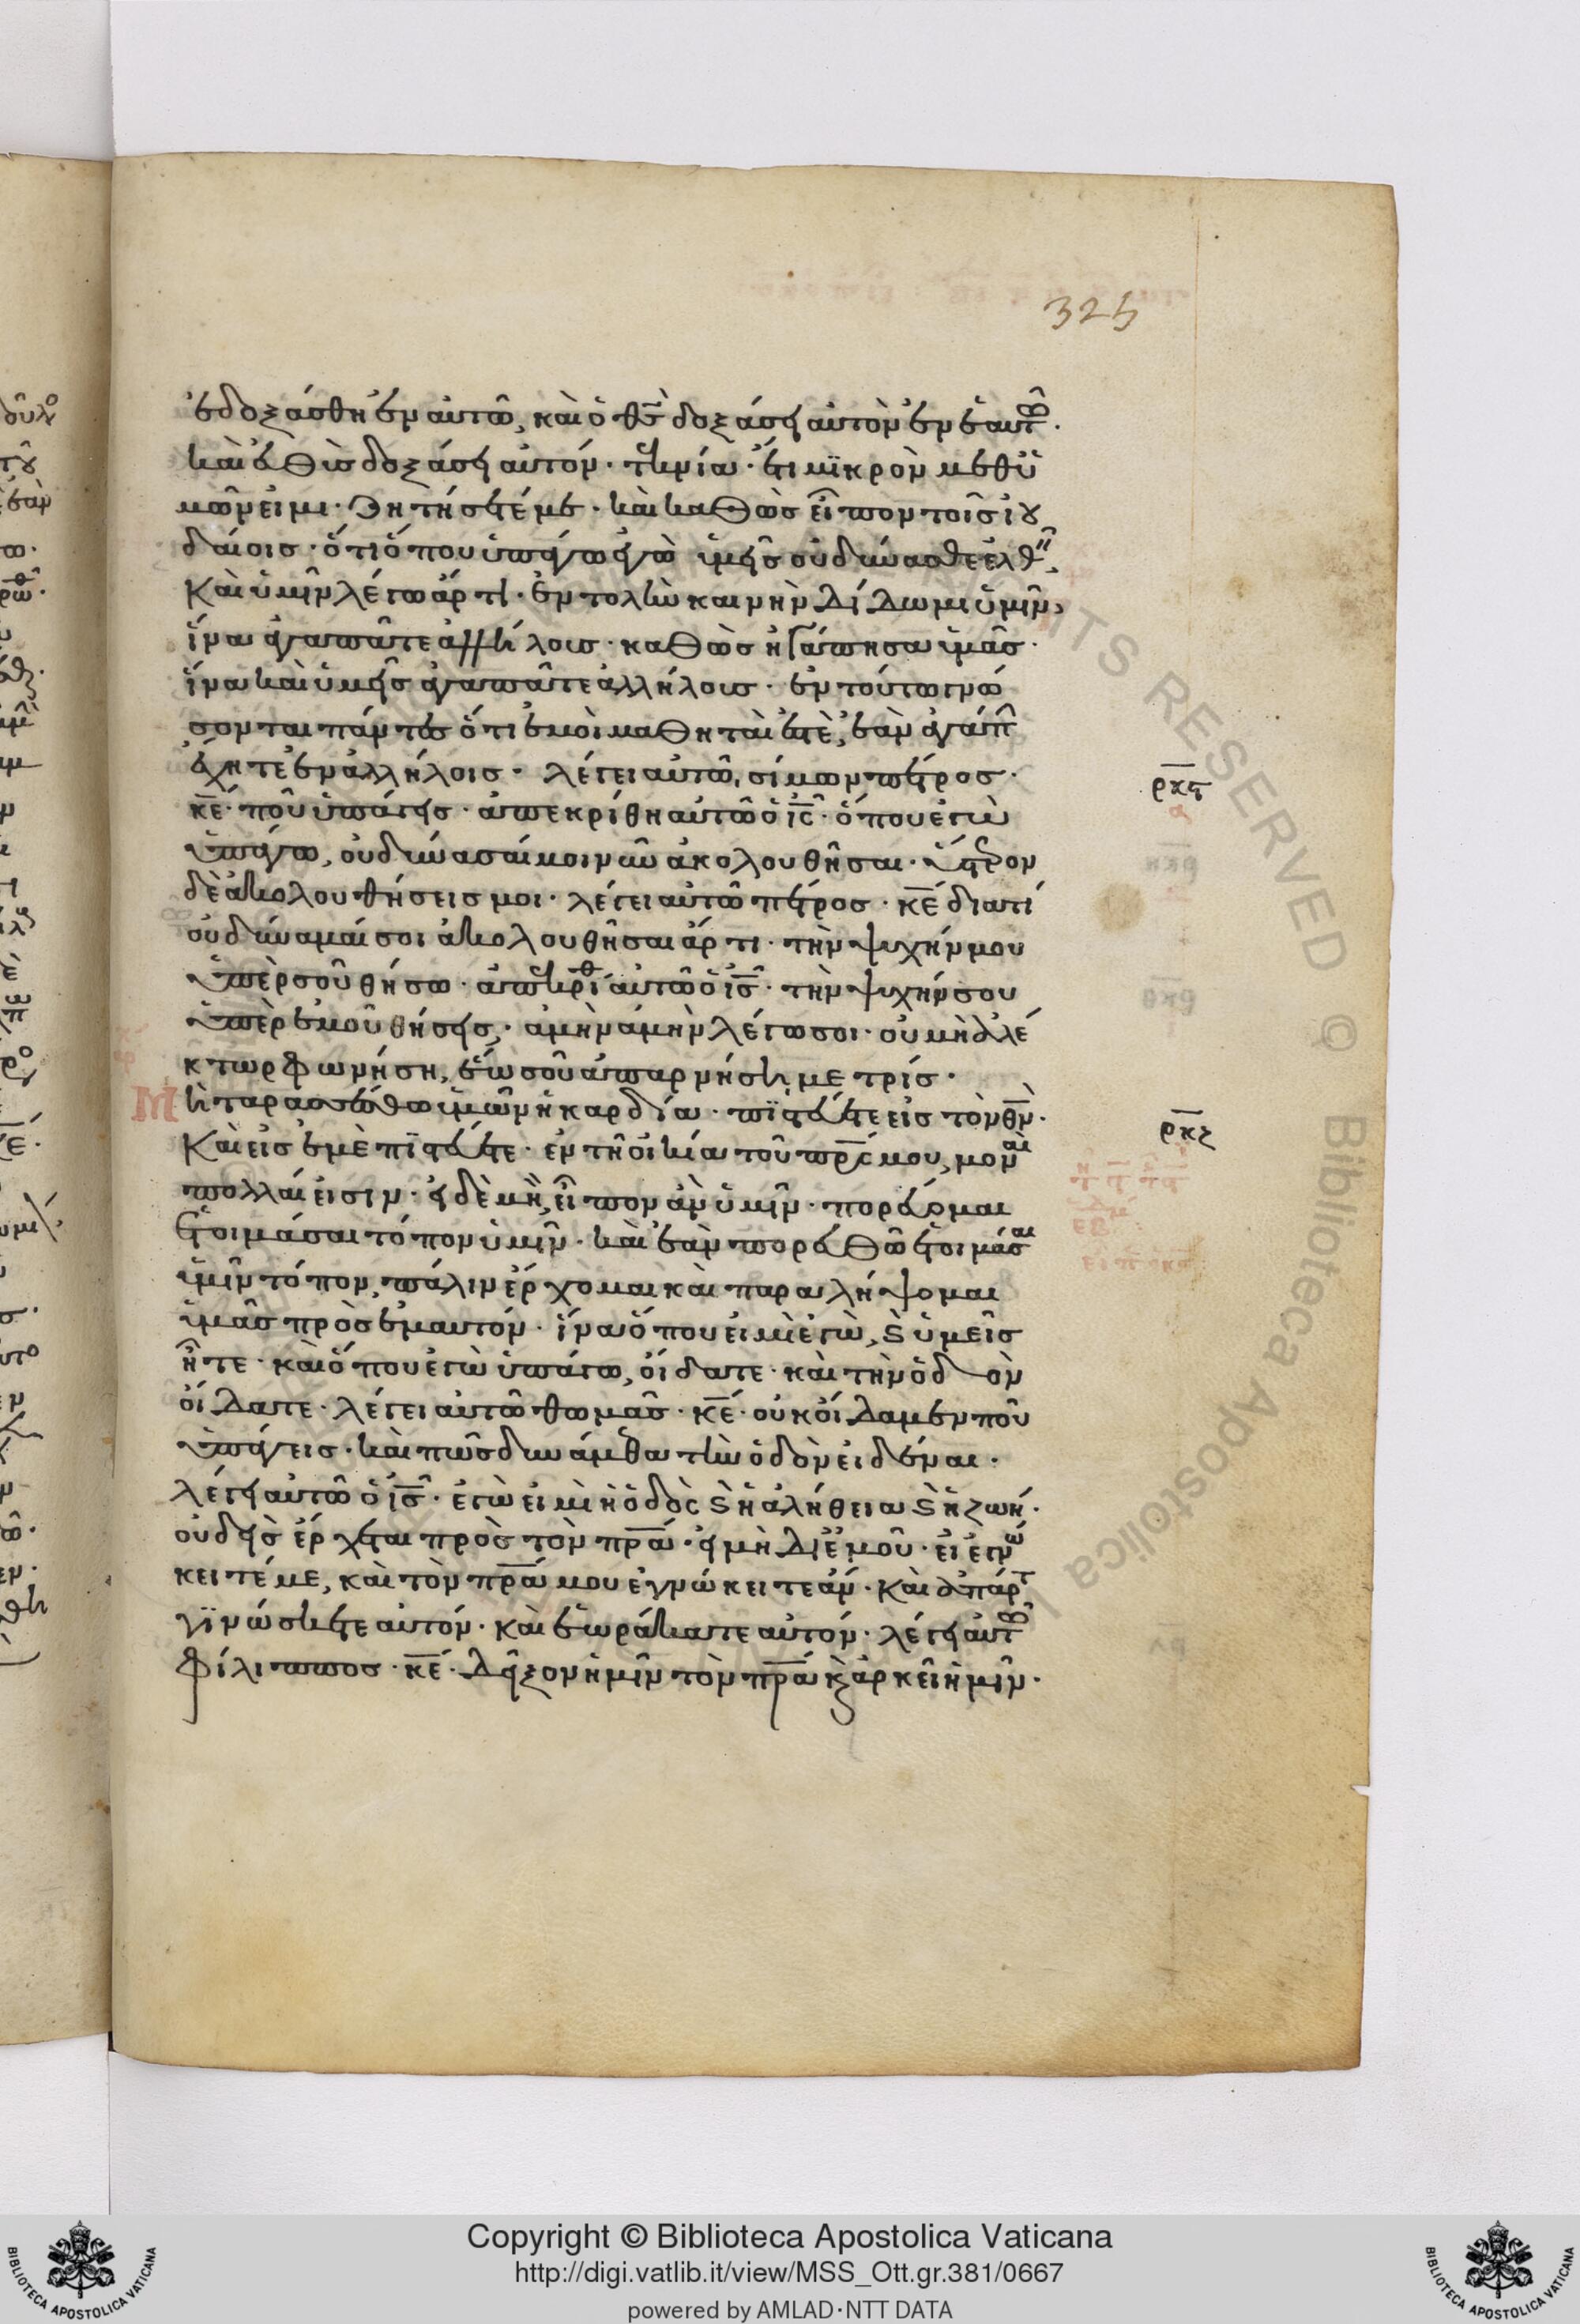 325
ἐδοξάσθη ἐν αὐτῶ, καὶ ὁ θς δοξάσει αὐτὸν ἐν ἑαυτῶ.
καὶ εὐθὺς δοξάσει αὐτόν. τεκνία. ἔτι μϊκρὸν μεθ' ὑ
μῶν εἰμι. ζητήσετέ με. καὶ καθὼς εἶπον τοῖς ἰου
δαίοις. ὅτι ὅπου ὑπάγω ἐγὼ ὑμεῖς οὐ δύνασθε ἐλθεῖν,
καὶ ὑμῖν λέγω ἄρτι. ἐντολὴν καινὴν δίδωμι ὑμῖν,
ἵνα ἀγαπᾶτε ἀλλήλους. καθὼς ἠγάπησα ὑμᾶς.
ἵνα καὶ ὑμεῖς ἀγαπᾶτε ἀλλήλους. ἐν τούτω γνώ
σονται πάντες ὅτι ἐμοὶ μαθηταὶ ἐστὲ, ἐὰν ἀγάπην
ἔχητε ἐν ἀλλήλοις. λέγει αὐτῶ, σίμων πέτρος.
κε. ποῦ ὑπάγεις. ἀπεκρίθη αὐτῶ ὁ ις. ὅπου ἐγὼ
ρκς
ὑπάγω, οὐ δύνασαί μοι νῦν ἀκολουθῆσαι. ὕστερον
δὲ ἀκολουθήσεις μοι. λέγει αὐτῶ πέτρος. κε διατί
οὐ δύναμαί σοι ἀκολουθῆσαι ἄρτι. τὴν ψυχήν μου
ὑπὲρ σοῦ θήσω. ἀπεκρίθη αὐτῶ ὁ ις. τὴν ψυχήν σου
ὑπὲρ ἐμοῦ θήσεις. ἀμὴν ἀμὴν λέγω σοι. οὐ μὴ ἀλέ
κτωρ φωνήση, ἕως οὗ ἀπαρνήση με τρίς.
Μὴ ταρασσέσθω ὑμῶν ἡ καρδία. πϊστεύετε εἰς τὸν θν.
ρκζ
καὶ εἰς ἐμὲ πϊστεύετε. ἐν τῆ οἰκία τοῦ πρς μου, μοναὶ
πολλαί εἰσιν. εἰ δὲ μὴ, εἶπον ἂν ὑμῖν. πορεύομαι
ἑτοιμάσαι τόπον ὑμῖν. καὶ ἐὰν πορευθῶ ἑτοιμάσαι
ὑμῖν τόπον, πάλιν ἔρχομαι καὶ παραλήψομαι
ὑμᾶς πρὸς ἐμαυτόν. ἵνα ὅπου εἰμὶ ἐγὼ, ϗ ὑμεῖς
ἦτε. καὶ ὅπου ἐγὼ ὑπάγω, οἴδατε. καὶ τὴν ὁδὸν
οἴδατε. λέγει αὐτῶ θωμᾶς. κε. οὐκ οἴδαμεν ποῦ
ὑπάγεις. καὶ πῶς δυνάμεθα τὴν ὁδὸν εἰδέναι.
λέγει αὐτῶ ὁ ις. ἐγὼ εἰμὶ ἡ ὁδὸς ϗ ἡ ἀλήθεια ϗ ἡ ζωή.
οὐδεὶς ἔρχεται πρὸς τὸν πρα. εἰ μὴ δι' ἐμοῦ. εἰ ἐγνώ
κειτέ με, καὶ τὸν πρα μου ἐγνώκειτε ἄν. καὶ ἀπάρτι
γϊνώσκετε αὐτόν. καὶ ἑωράκατε αὐτόν. λέγει αὐτῶ
φίλιππος. κε. δεῖξον ἡμῖν τὸν πρα ϗ ἀρκεῖ ἡμῖν.
RIGHTS RESERVED © Biblioteca Apostolica Vaticana
Copyright © Biblioteca Apostolica Vaticana
http://digi.vatlib.it/view/MSS_Ott.gr.381/0667
powered by AMLAD·NTT DATA
BIBLIOTECA APOSTOLICA VATICANA
BIBLIOTECA APOSTOLICA VATICANA